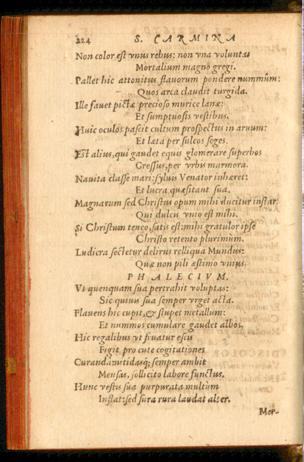 224 S. CARMINA
Non color est vnus rebus: non vna voluntas
Mortalium magno gregi.
Pallet hic attonitus flauorum pondere nummûm:
Quos arca claudit turgida.
Ille fauet pictæ precioso murice lanæ:
Et sumptuosis vestibus.
Huic oculos pascit cultum prospectus in aruum:
Et lata per sulcos seges.
Est alius, qui gaudet equis glomerare superbos
Gressus, per vrbis marmora.
Nauita classe mari: syluis Venator inhæret:
Et lucra quæsitant sua.
Magnarum sed Christus opum mihi ducitur instar:
Qui dulcis vnio est mihi.
Si Christum teneo, satis est: mihi gratulor ipse
Christo retento plurimum.
Ludicra sectetur delirus relliqua Mundus:
Quæ non pili æstimo vnius.
PHALECIVM.
Vt quenquam sua pertrahit voluptas:
Sic quiuis sua semper vrget acta.
Flauens hic cupit, & stupet metallum:
Et nummos cumulare gaudet albos.
Hic regalibus vt fruatur escis
Figit pro cute cogitationes
Curanda nitidaq;: semper ambit
Mensas, sollicito labore functus.
Hunc vestis sua purpurata multùm
Inflat: sed sura rura laudat alter.
Mer-